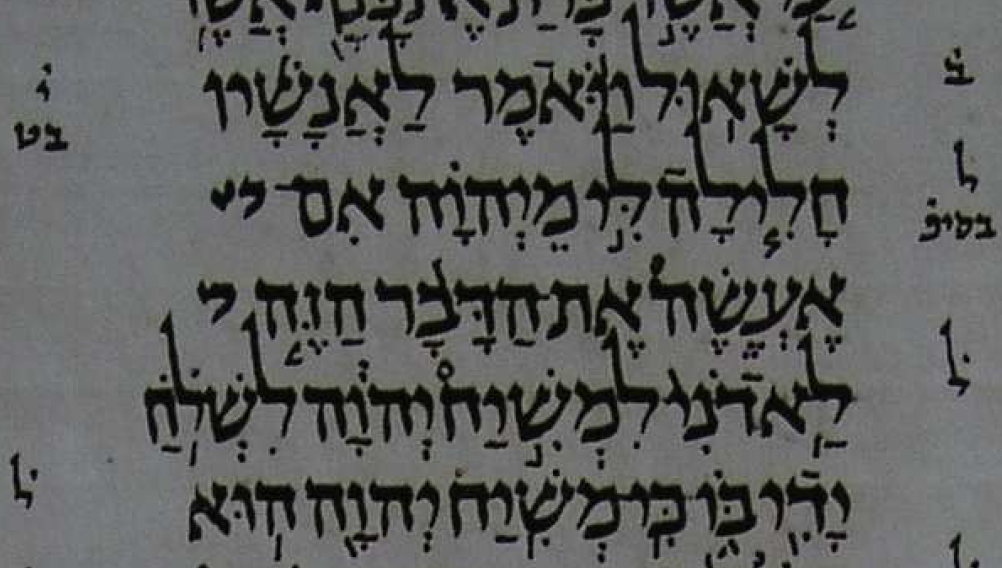 עַל אֲשֶׁר כָּרַת אֶת־כָּנָף אֲשֶׁר
לְשָׁאֽוּל׃ וַיֹּ֨אמֶר לַאֲנָשָׁ֜יו
חָלִ֧ילָה לִּ֣י מֵֽיְהוָ֗ה אִם־
אֶעֱשֶׂה֩ אֶת־הַדָּבָ֨ר הַזֶּ֤ה
לַֽאדֹנִי֙ לִמְשִׁ֣יחַ יְהוָ֔ה לִשְׁלֹ֥חַ
יָדִ֖י בּ֑וֹ כִּֽי־מְשִׁ֥יחַ יְהוָ֖ה הֽוּא׃
ב̇
ל
בסיפ̇
ל̇
י̇
בט
ל̇